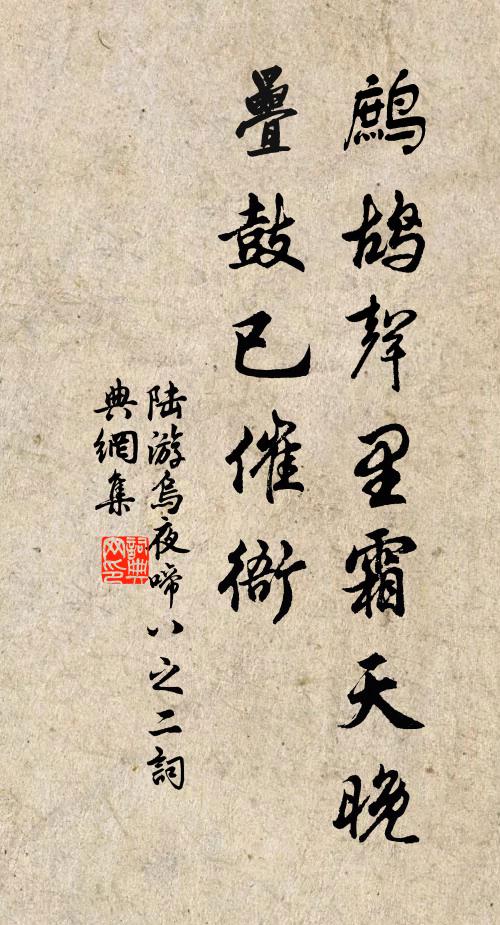 鷓鴣聲里霜天晚
疊鼓已催衙
陆游烏夜啼八之二詞
典網集
詞典网印